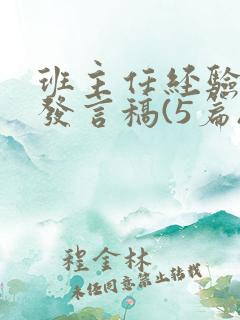 班主任经验
發言稿(5篇
程金林
未经同意禁止转载